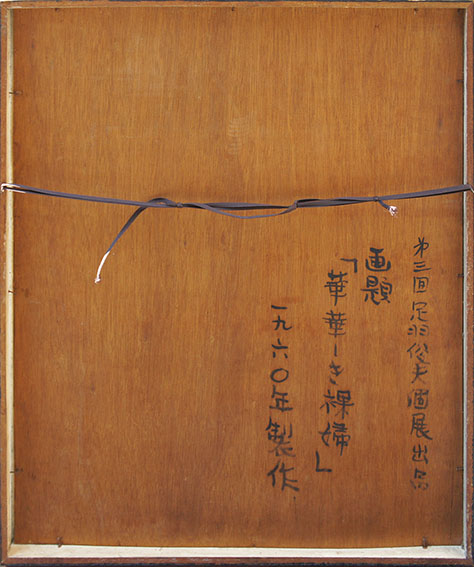 第三回足羽俊夫個展出品
画題
「華華しき裸婦」
一九六〇年製作